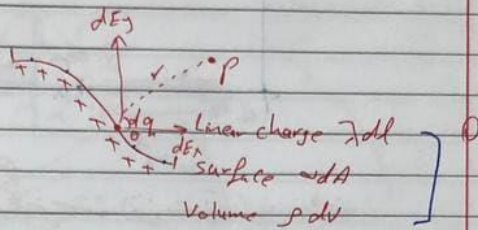 dEy
r P
+ + + + + + + +
dq → Linear charge λdl
θ dEx
surface σdA
Volume ρdv